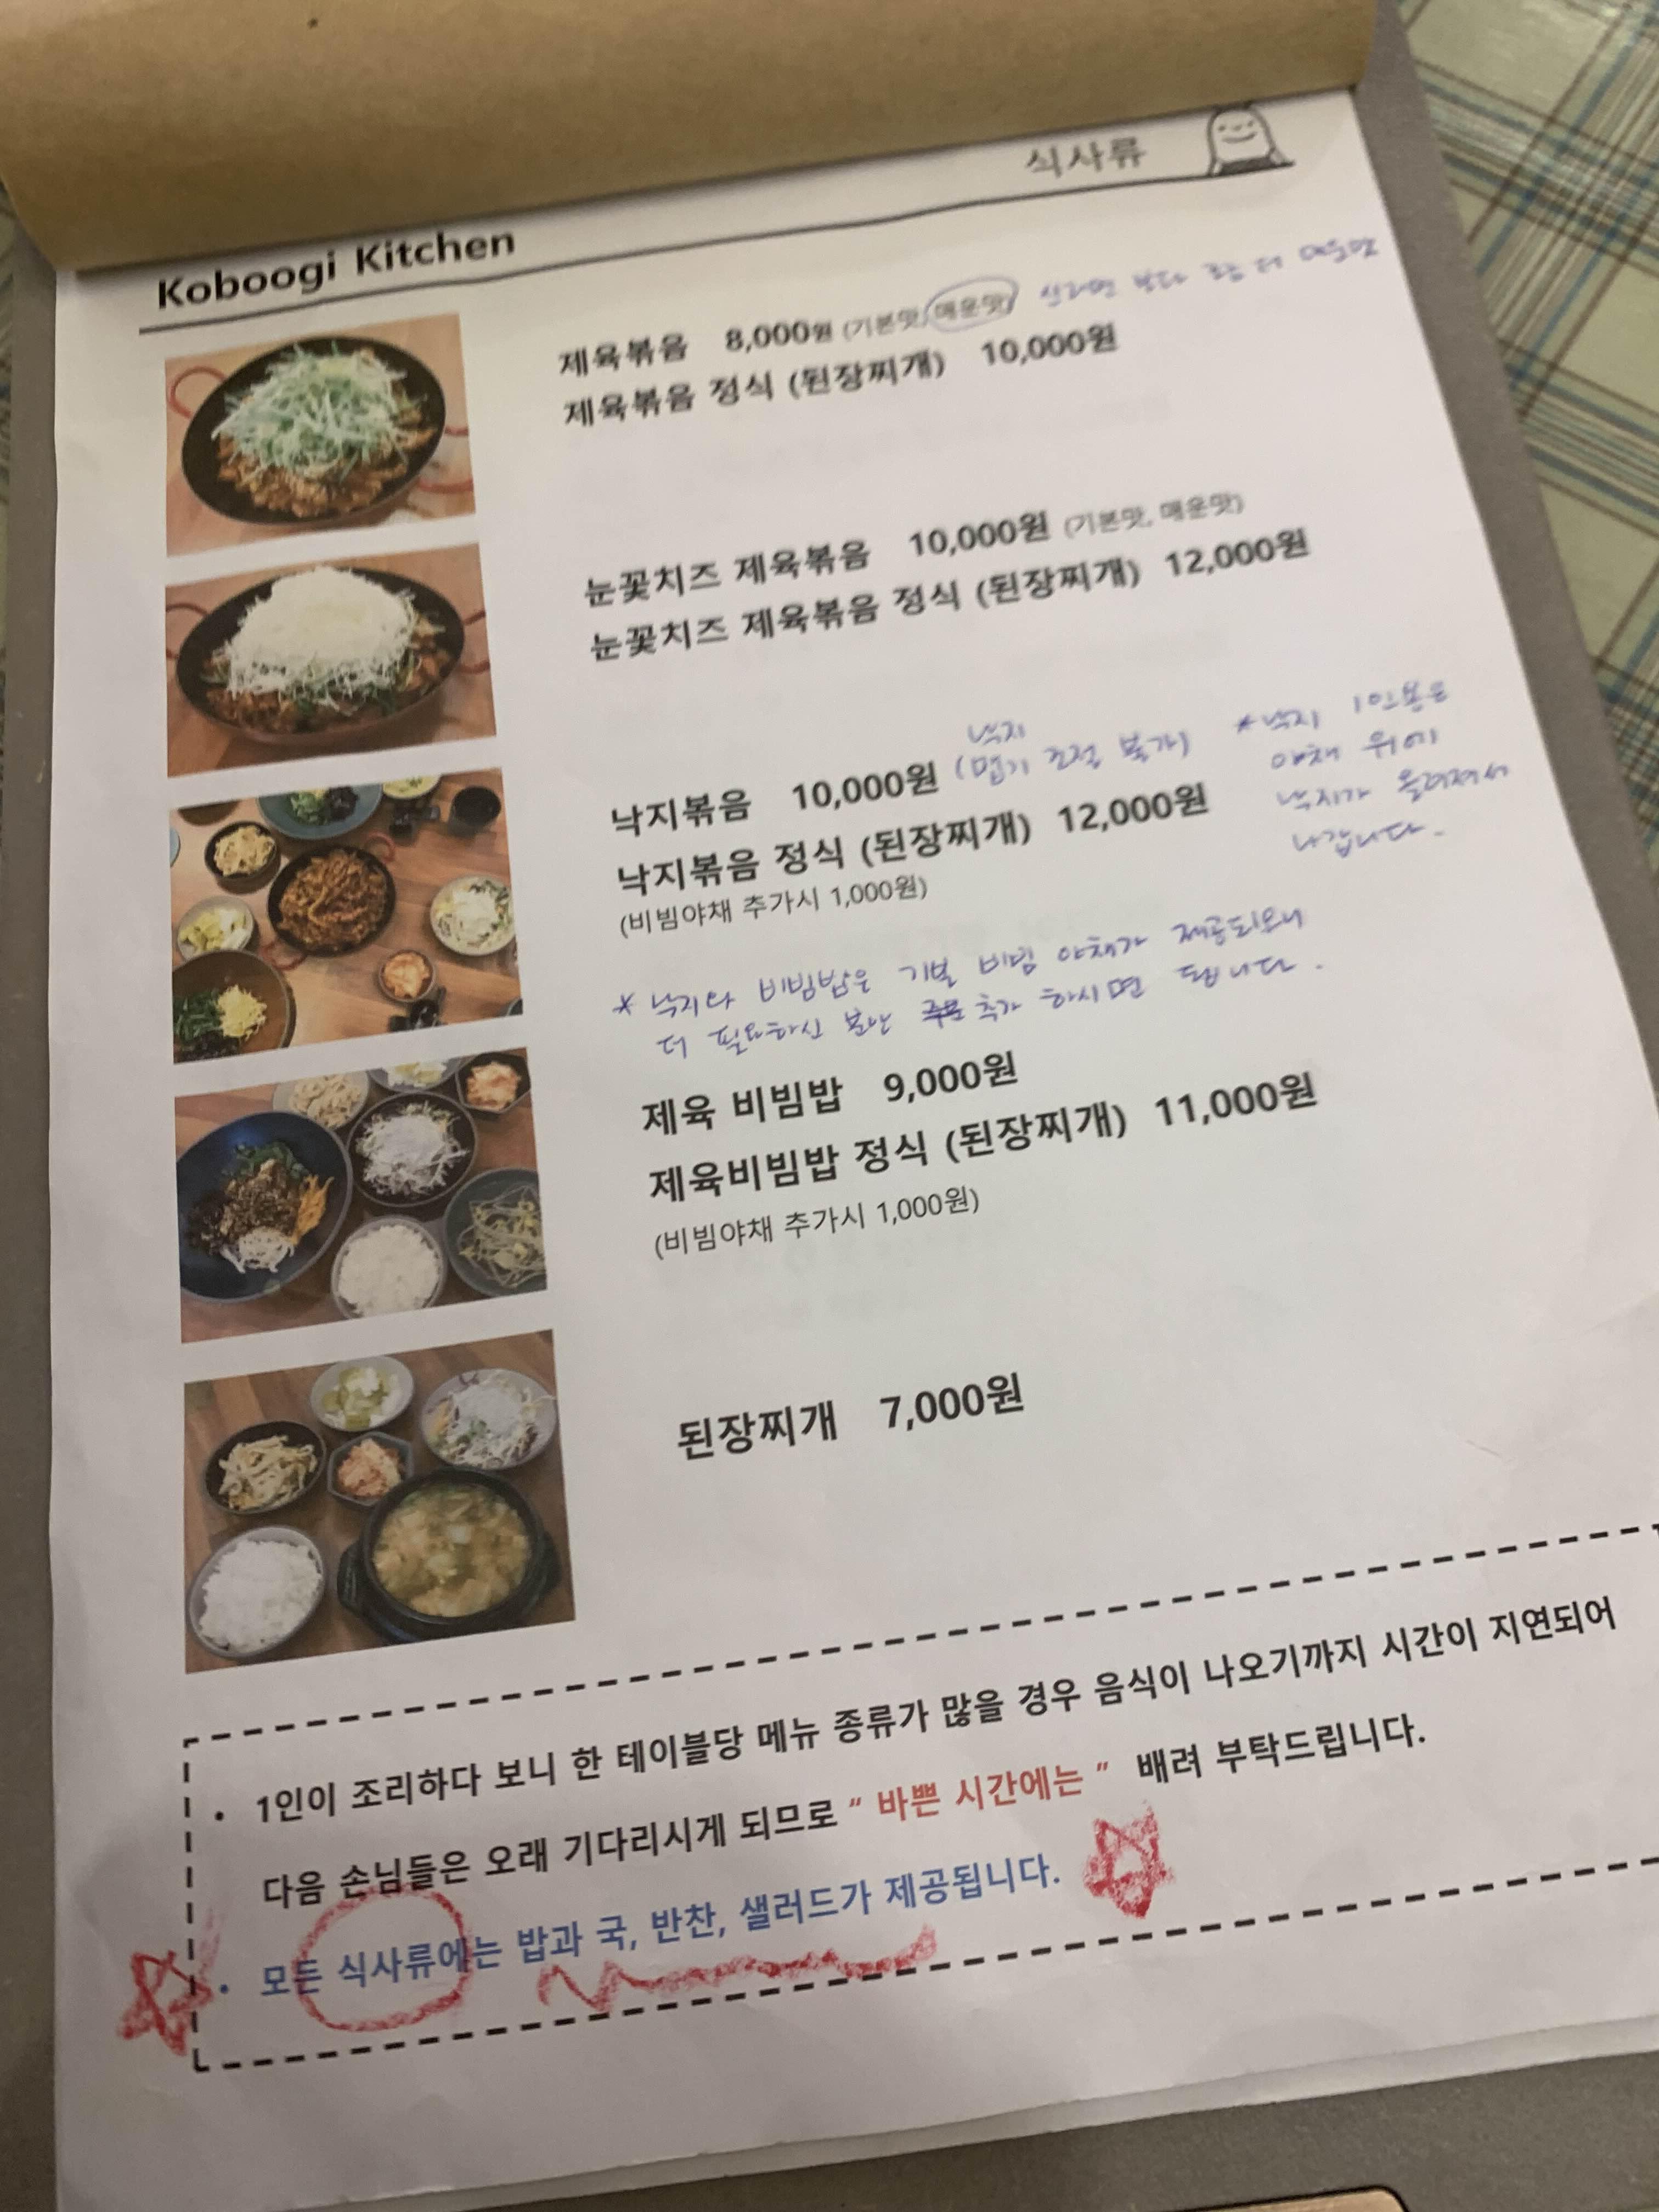 식사류
Koboogi Kitchen
제육볶음 8,000원 (기본맛, 매운맛) 신라면 보다 조금 더 매운맛
제육볶음 정식 (된장찌개) 10,000원
눈꽃치즈 제육볶음 10,000원 (기본맛, 매운맛)
눈꽃치즈 제육볶음 정식 (된장찌개) 12,000원
낙지
낙지볶음 10,000원 (맵기 조절 불가)
낙지볶음 정식 (된장찌개) 12,000원
(비빔야채 추가시 1,000원)
* 낙지 1인분은
야채 위에
낙지가 올려져서
나갑니다.
* 낙지와 비빔밥은 기본 비빔 야채가 제공되오니
더 필요하신 분만 추가 하시면 됩니다.
제육 비빔밥 9,000원
제육비빔밥 정식 (된장찌개) 11,000원
(비빔야채 추가시 1,000원)
된장찌개 7,000원
• 1인이 조리하다 보니 한 테이블당 메뉴 종류가 많을 경우 음식이 나오기까지 시간이 지연되어
다음 손님들은 오래 기다리시게 되므로 “ 바쁜 시간에는 ” 배려 부탁드립니다.
• 모든 식사류에는 밥과 국, 반찬, 샐러드가 제공됩니다.